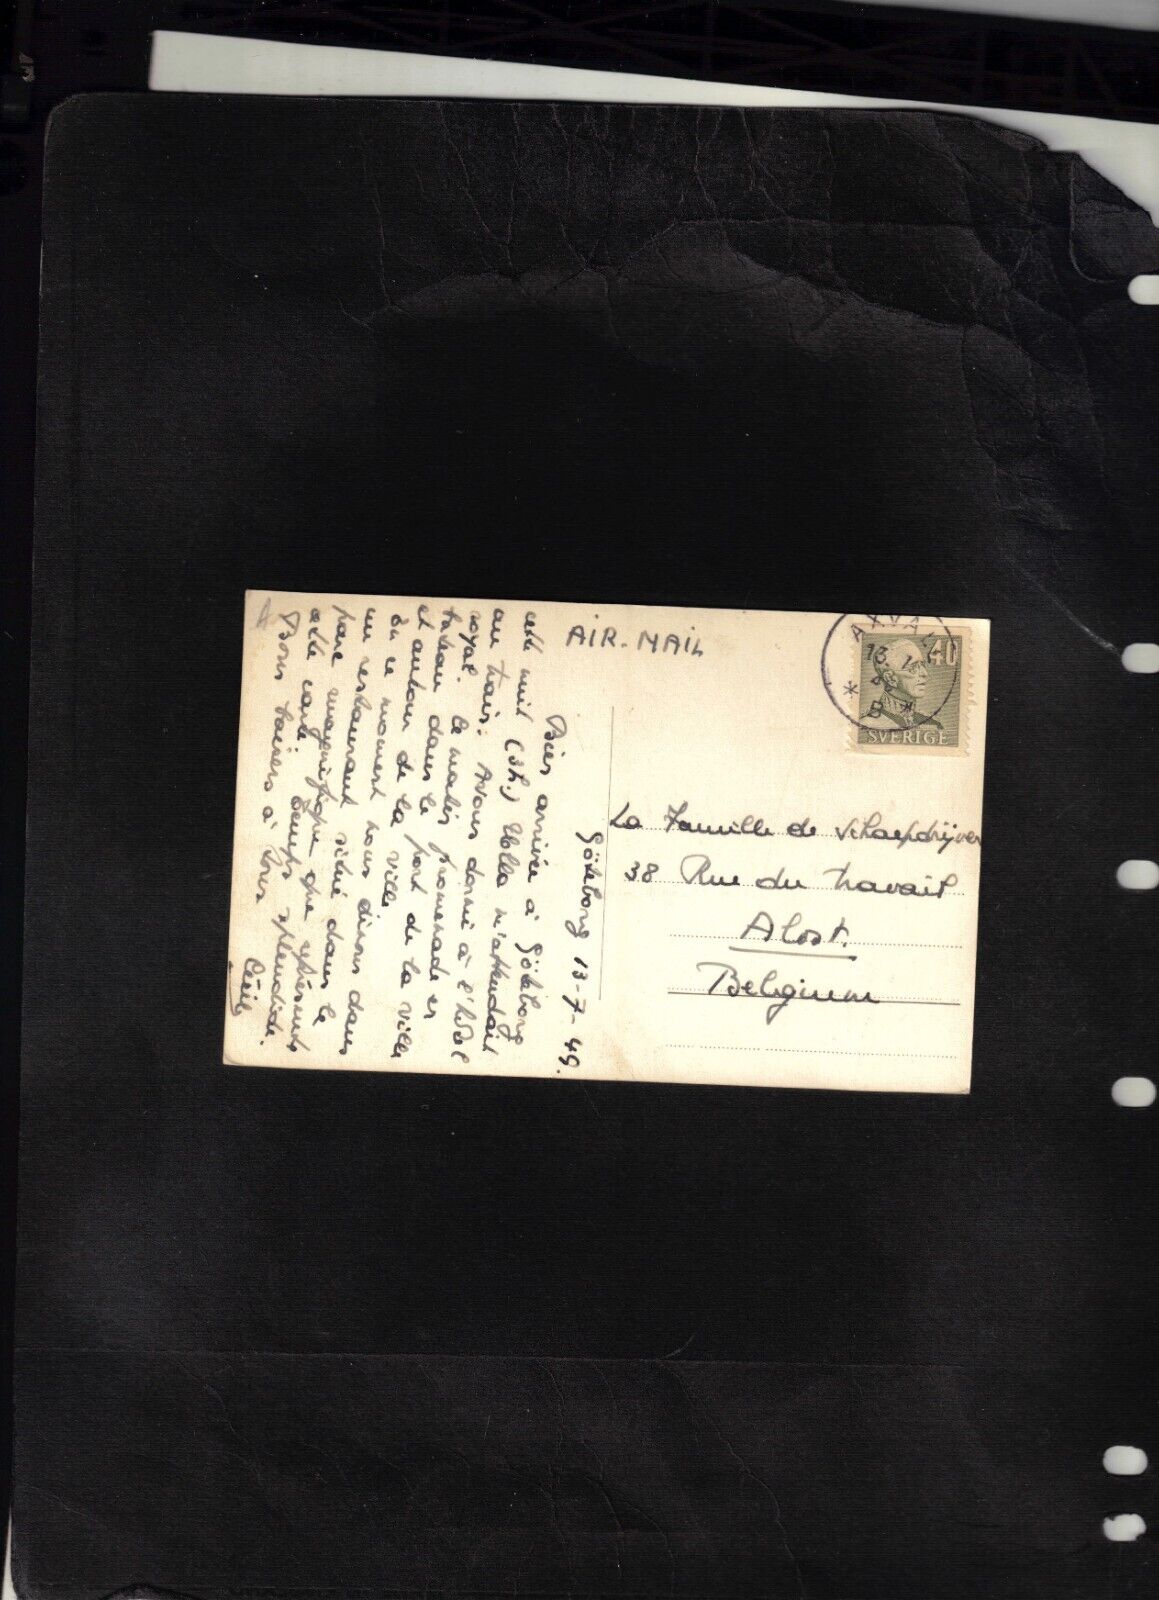 AIR-MAIL
AXVALL
13.7
49
B
40
SVERIGE
Göteborg 13-7-49.
Bien arrivée à Göteborg
cette nuit (3h.) Ulla m'attendait
au train. Avons dormi à l'hôtel
royal. Ce matin promenade en
bateau dans le port de la ville
et autour de la ville
En ce moment nous dînons dans
un restaurant situé dans le
parc magnifique que représente
cette carte. Temps splendide.
Bons baisers à tous
Cécile
La Famille de Schaepdrijver
38 Rue du travail
Alost.
Belgium
A